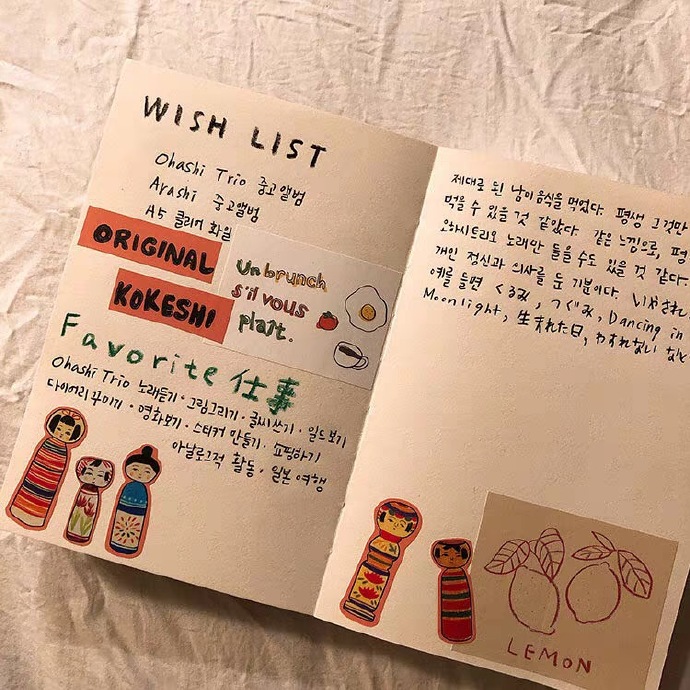 WISH LIST
Ohashi Trio 중고앨범
Arashi 중고앨범
A5 클리어 화일
ORIGINAL
KOKESHI
Un brunch
s'il vous
plaît.
Favorite 仕事
Ohashi Trio 노래듣기 · 그림그리기 · 글씨쓰기 · 일드보기
다이어리 꾸미기 · 영화보기 · 스티커 만들기 · 쇼핑하기
아날로그적 활동 · 일본 여행
제대로 된 냥이음식을 먹었다. 평생 그것만
먹을 수 있을 것 같았다. 같은 느낌으로, 평
오하시트리오 노래만 들을 수도 있을 것 같다.
개인 정신과 의사를 둔 기분이다. いやされ
예를 들면 くるみ, つぐみ, Dancing in
Moonlight, 生まれた日,
LEMON